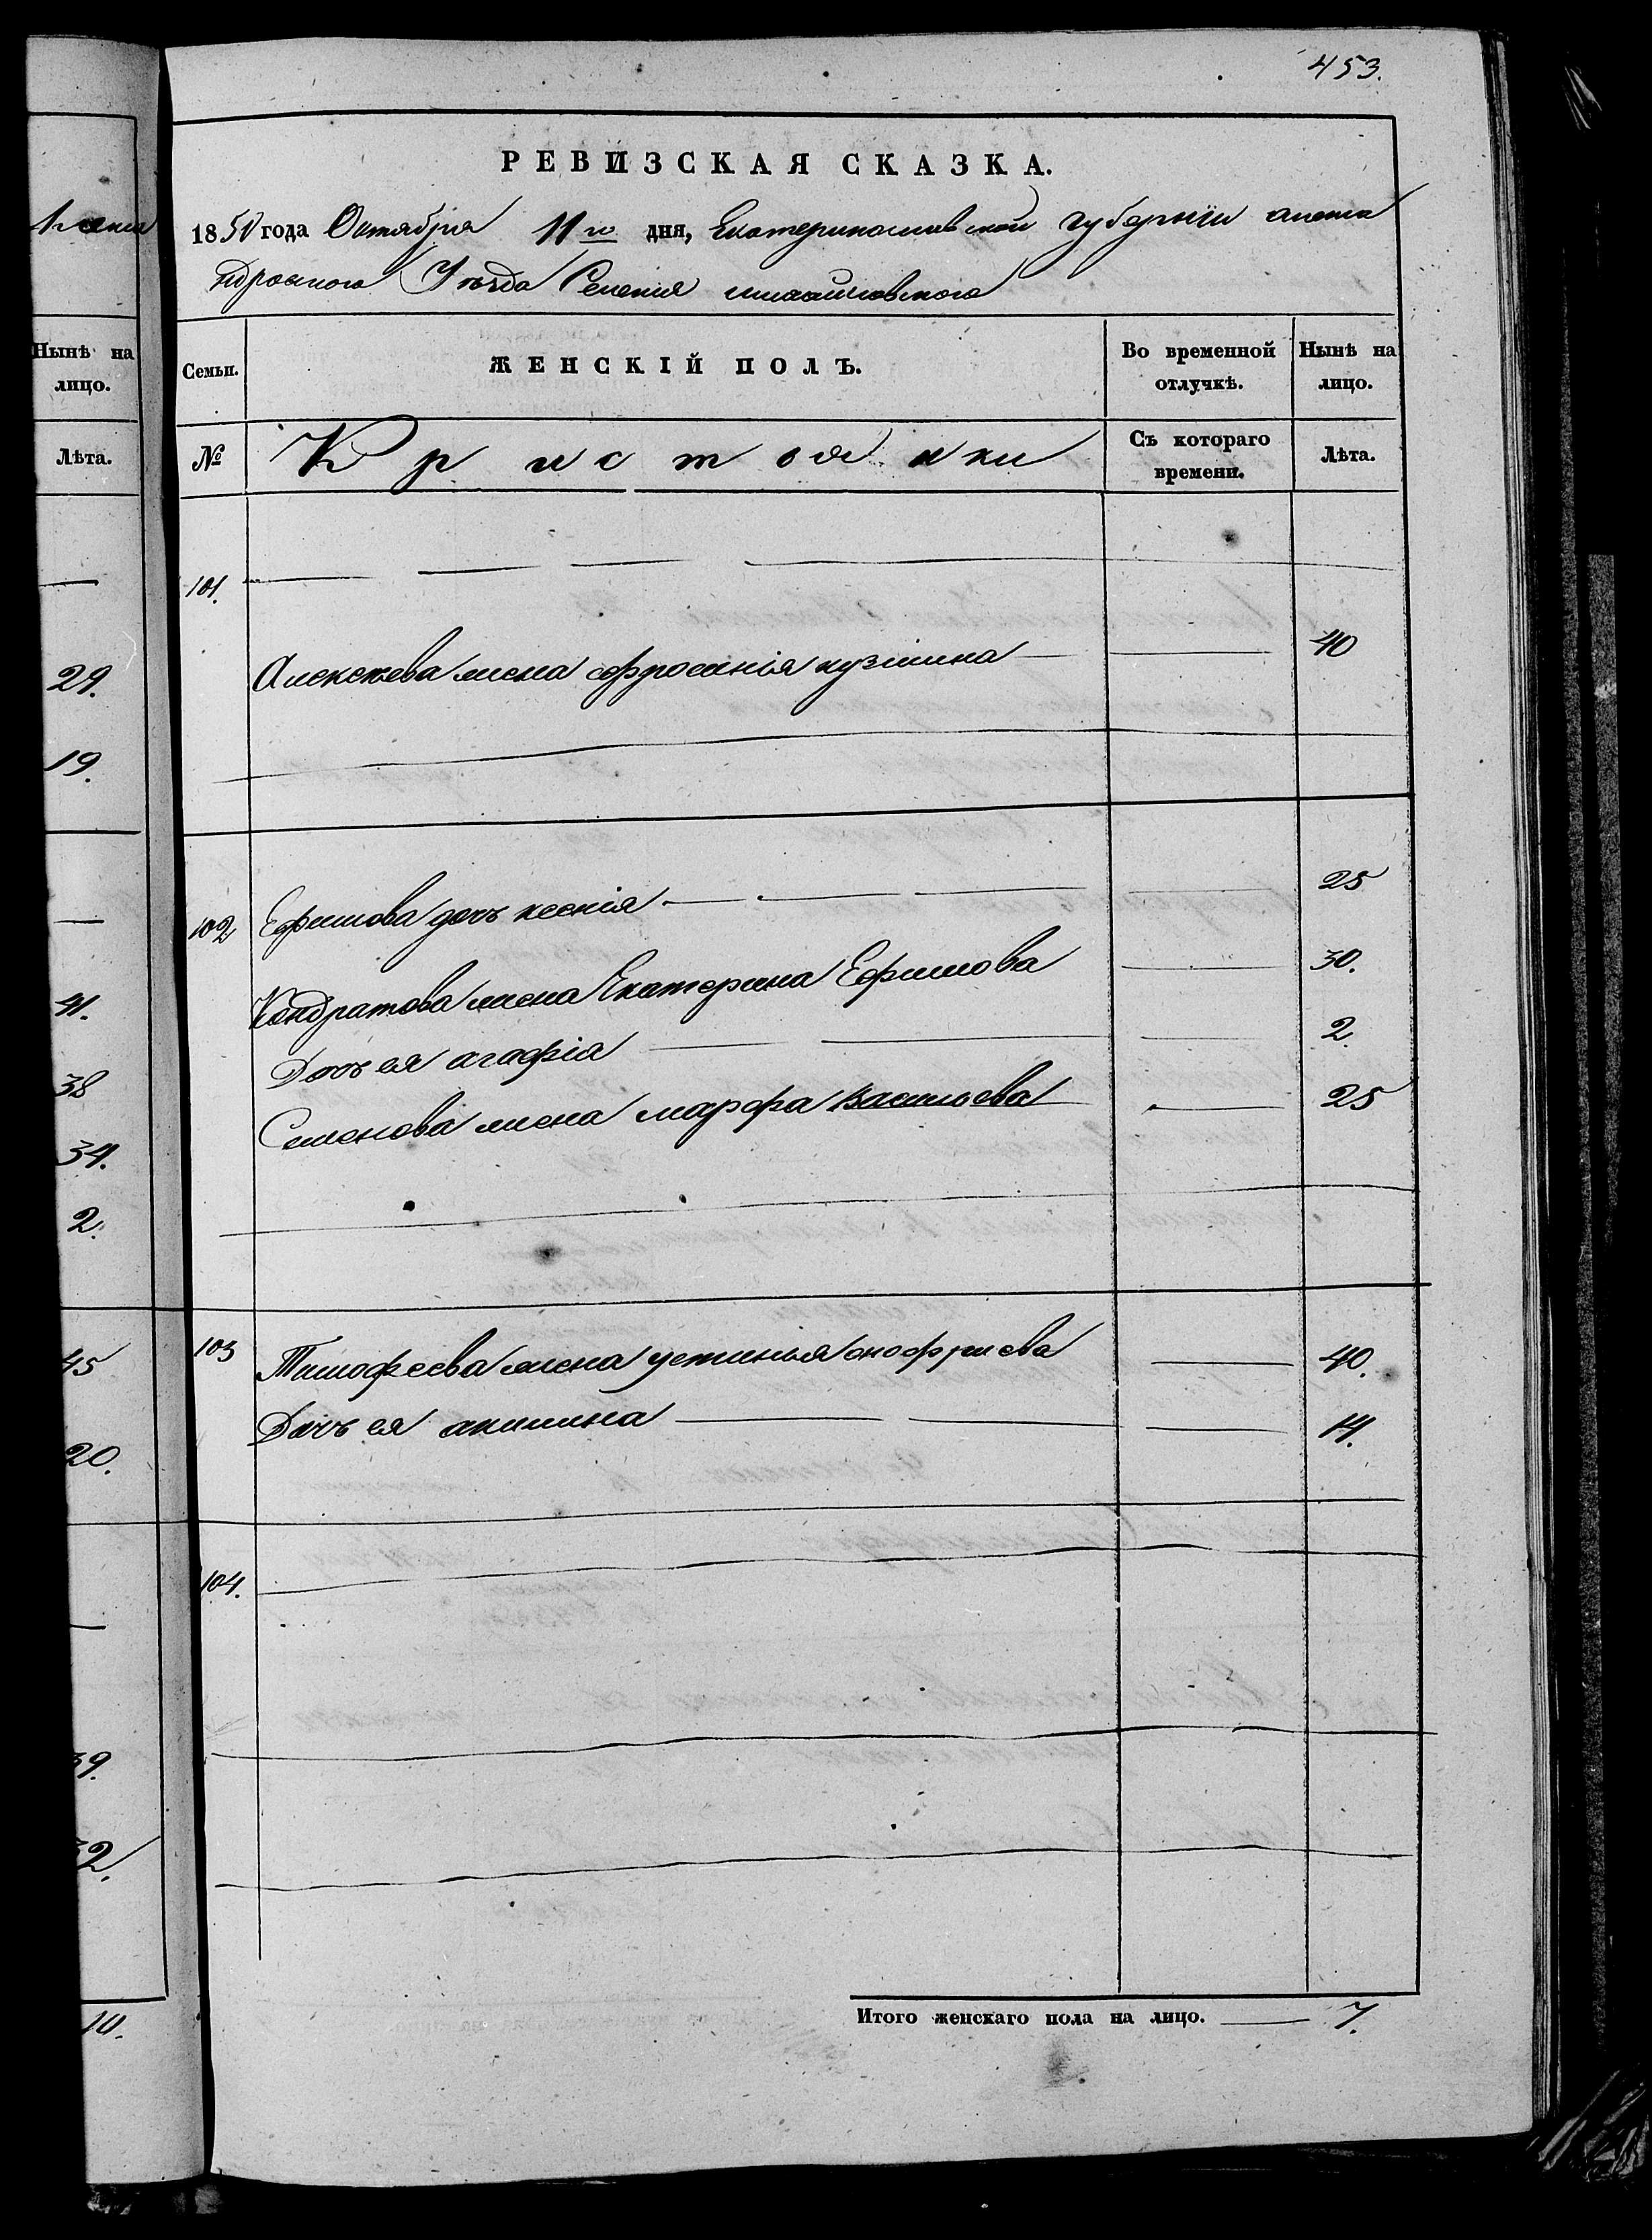 453.
РЕВИЗСКАЯ СКАЗКА.
1850 года Октября 11го дня, Екатеринославской губернiи алекса
ндровского Уезда Селения михайловского
Нынѣ на лицо.
Лѣта.
29.
19.
41.
38
34.
2.
45
20.
39.
32.
10.
Семьи. ЖЕНСКІЙ ПОЛЪ. Во временной отлучкѣ. Нынѣ на лицо.
№ Кристоянки Съ котораго времени. Лѣта.
101.
Алексеева жена ефросения кузмина 40
102 Ефимова дочъ ксенiя 25
Кондратова жена Екатерина Ефимова 30.
Дочъ ея агафiя 2
Семенова жена марфа васильева 25
103 Тимофеева жена устинья онофриева 40.
Дочъ ея акилина 14.
104.
Итого женскаго пола на лицо. 7.